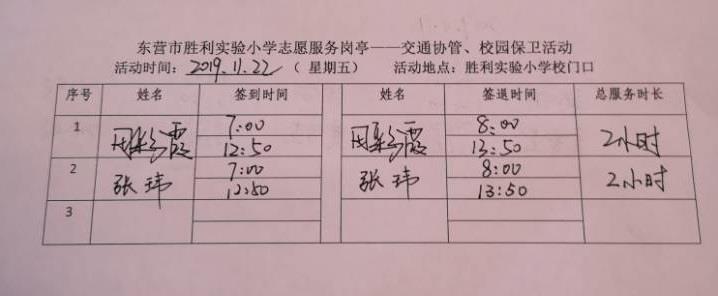 东营市胜利实验小学志愿服务岗亭——交通协管、校园保卫活动
活动时间：2019.11.22（星期五） 活动地点：胜利实验小学校门口
序号 姓名 签到时间 姓名 签退时间 总服务时长
1 霞 7:00 霞 8:00 2小时
12:50 13:50
2 张玮 7:00 张玮 8:00 2小时
12:50 13:50
3